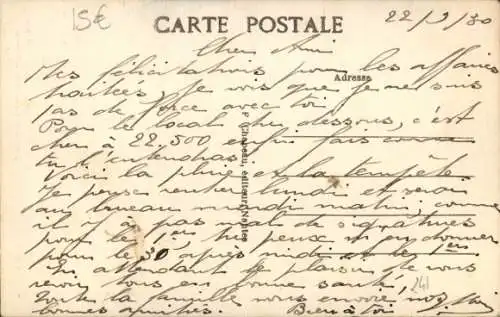 15€
CARTE POSTALE
22/9/30
Cher Ami
Mes félicitations pour les affaires
Adresse
traitées, je vois que je ne suis
pas de force avec toi.
Pour le local du dessous, c'est
cher à 22.500 enfin fais comme
tu l'entendras.
Voici la pluie et la tempête
Je pense rentrer lundi et serai
au bureau mardi matin, comme
il y a pas mal de signatures
pour le 1er, tu peux m'en donner
pour le 30 après midi et le 1er.
En attendant le plaisir de vous
revoir tous en bonne santé,
Toute la famille vous envoie nos
bonnes amitiés. Bien à toi
F. Chapeau, éditeur, Nantes
241